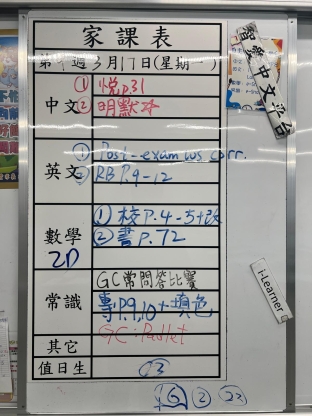 家課表
第 週3月17日(星期一)
中文
① 悅p.31
② 明默本
英文
① Post-exam ws corr.
② RB P.9-12
數學
2D
① 校P.4-5+改
② 書P.72
常識
GC常問答比賽
專P.9,10+填色
其它
GC:Padlet
值日生
23
② 23
智愛中文平台
i-Learner